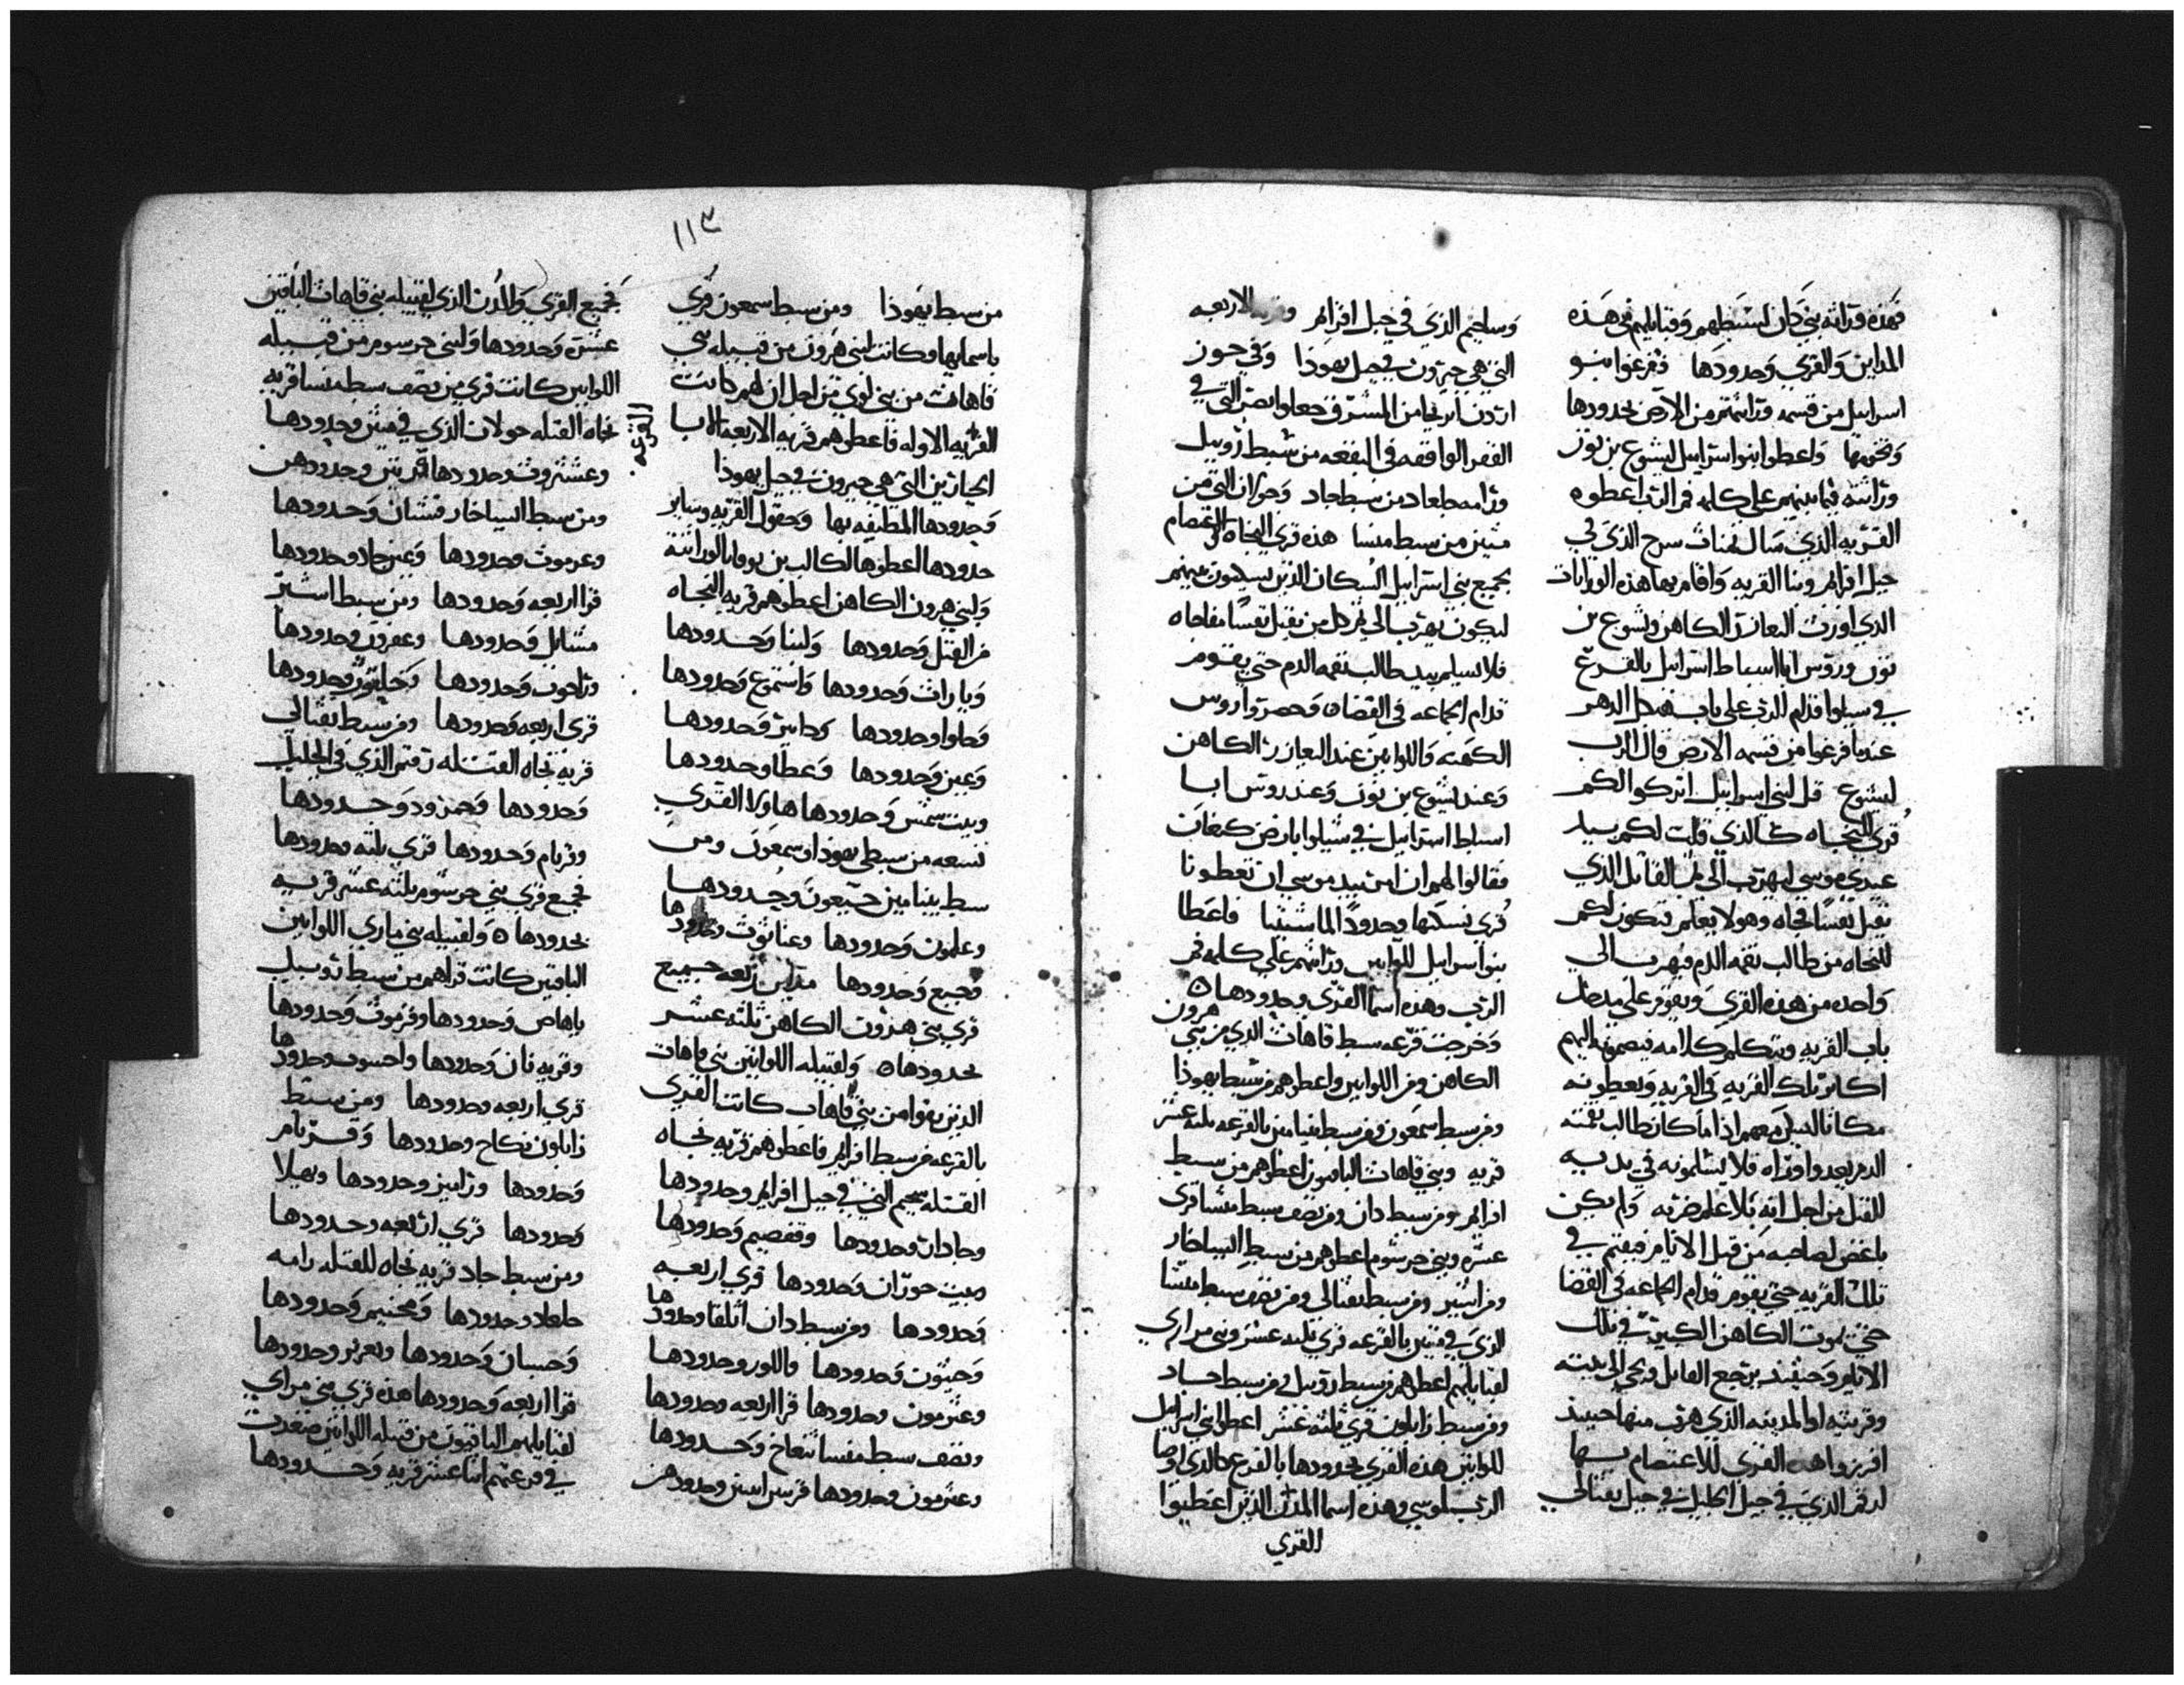 فهذه وراثة بني دان لسبطهم وقبايلهم في هذه
المداين والقري وحدودها ففرغوا بنو
اسراييل من قسمه وراثتهم من الارض بحدودها
وتخومها واعطوا بنو اسراييل ليشوع بن نون
وراثته فيما بينهم على كلمه فم الرب اعطوه
القريه الذي سال تمنات سرح الذي في
جبل افرايم وبنا القريه واقام بها هذه الوراثات
الذي اورث العازر الكاهن ويشوع بن
نون وروس ابا اسباط اسراييل بالقرع
في سيلوا قدام الرب على باب قبه الدهر
عندما فرغوا من قسمه الارض قال الرب
ليشوع قل لبني اسراييل اتركوا الكم
قري النجاه كالذي قلت لكم بيد
عبدي موسي ليهرب الي ثم القاتل الذي
يقتل نفسا فجاه وهو لا يعلم فتكون لكم
للنجاه من طالب نقمه الدم فيهرب الي
واحده من هذه القري ويقوم على مدخل
باب القريه ويتكلم كلامه فيضمونه اليهم
اكابر تلك القريه في القريه ويعطونه
مكانا ليسكن معهم اذا ما كان طالب نقمته
الدم يعدوا وراه فلا يسلمونه في يديه
للقتل من اجل انه بلا علم ضربه ولم يكن
باغض لصاحبه من قبل الايام فيقيم في
تلك القريه حتي يقوم قدام الجماعه في القضا
حتي يموت الكاهن الكبير في تلك
الايام وحينيذ يرجع القاتل ويجي الي بيته
وقريته او المدينه الذي هرب منها حينيذ
افرزوا هذه القري للاعتصام بها
لرقم الذي في جبل الجليل في جبل نفتالي
وساخيم الذي في جبل افرايم وقريه الاربعه
التي هي حبرون في جبل يهوذا وفي جوز
اردن اريحا من المشرق جعلوا بصر التي في
القفر الواقفه في البقعه من سبط روبيل
ورامه جلعاد من سبط جاد وجولان التي من
مثنين من سبط منسا هذه قري النجاه الاعتصام
لجميع بني اسراييل السكان الذين يسكنون بينهم
ليكون يهرب الي ثم كل من يقتل نفسا مفاجاه
فلا يسلم بيد طالب نقمه الدم حتي يقوم
قدام الجماعه في القضا وحضروا روس
الكهنه واللوايين عند العازر الكاهن
وعند يشوع بن نون وعند روس ابا
اسباط اسراييل في شيلوا بارض كنعان
فقالوا لهم ان امر بيد موسي ان تعطونا
قري نسكنها وحدودا لماشيتنا فاعطا
بنو اسراييل للوايين وراثتهم على كلمه فم
الرب وهذه اسما القري وحدودها
وخرجت قرعه سبط قاهات الذي من بني هرون
الكاهن ومن اللوايين واعطوهم من سبط يهوذا
ومن سبط سمعون ومن سبط بنيامين بالقرعه ثلثه عشر
قريه وبني قاهات الباقيون اعطوهم من سبط
افرايم ومن سبط دان ومن نصف سبط منسا قري
عشره وبني جرشوم اعطوهم من سبط اليساخار
ومن اشير ومن سبط نفتالي ومن نصف سبط منسا
الذي في مثنين بالقرعه قري ثلثه عشر وبني مراري
لقبايلهم اعطوهم من سبط روبيل ومن سبط جاد
ومن سبط زابلون قري ثلثه عشر اعطوا بني اسراييل
للوايين هذه القري بحدودها بالقرع كالذي اوصا
الرب لموسي وهذه اسما المدن الذين اعطيوا
القري
١١٣
من سبط يهوذا ومن سبط سمعون قري
باسمايها وكانت لبني هرون من قبيله بني
قاهات من بني لوي من اجل ان لهم كانت
القرعه الاوله فاعطوهم قريه الاربعه الابا
الجبارين التي هي حبرون في جبل يهوذا
وحدودها المطيفه بها وحقول القريه وساير
حدودها اعطوها لكالب بن يوفنا بالوراثة
ولبني هرون الكاهن اعطوهم قريه النجاه
من القتل وحدودها ولبنا وحدودها
وياراث وحدودها واستموع وحدودها
وحلوا وحدودها وداير وحدودها
وعين وحدودها وعطا وحدودها
وبيت شمش وحدودها هاولا القري
تسعه من سبطي يهوذا وسمعون ومن
سبط بنيامين جبعون وحدودها
وعلمون وحدودها وعناثوث وحدودها
وجبع وحدودها مداين اربعه جميع
قري بني هرون الكاهن ثلثه عشر
بحدودها ولقبيله اللوايين بني قاهات
الذين بقوا من بني قاهات كانت القري
بالقرعه من سبط افرايم فاعطوهم قريه نجاه
القتله سحيم التي في جبل افرايم وحدودها
وجادار وحدودها وقفصيم وحدودها
وبيت حوران وحدودها قري اربعه
وحدودها ومن سبط دان اثلقا وحدودها
وجبثون وحدودها وايلون وحدودها
وعثرمون وحدودها قرا اربعه وحدودها
ونصف سبط منسا تنعاخ وحدودها
وعثرمون وحدودها قريين اثنين وحدودهن
فجميع القري والمدن الذي لقبيله بني قاهات الباقين
عشره وحدودها ولبني جرسوم من قبيله
اللوايين كانت قري من نصف سبط منسا قريه
نجاه القتله جولان الذي في مثنين وحدودها
القريه
وعشتروث وحدودها قريتين وحدودهن
ومن سبط اليساخار قشيان وحدودها
وعرموث وحدودها وعين جاد وحدودها
قرا اربعه وحدودها ومن سبط اشير
مشايل وحدودها وعمرون وحدودها
وراحوب وحدودها وحلقون وحدودها
قري اربعه وحدودها ومن سبط نفتالي
قريه نجاه القتله رقم الذي في الجليل
وحدودها وحمزود وحدودها
وقريام وحدودها قري ثلثه وحدودها
فجميع قري بني جرسوم ثلثه عشر قريه
بحدودها ولقبيله بني ماراري اللوايين
الباقين كانت قراهم من سبط روبيل
ياهاص وحدودها وقرموث وحدودها
وقريه ثان وحدودها واحسوب وحدودها
قري اربعه وحدودها ومن سبط
زابلون نكاح وحدودها وقريام
وحدودها ورامين وحدودها ونهيلا
وحدودها قري اربعه وحدودها
ومن سبط جاد قريه نجاه للقتله رامه
جلعاد وحدودها ومحنيم وحدودها
وحسبان وحدودها ويعزير وحدودها
قرا اربعه وحدودها هذه قري بني مراري
لقبايلهم الباقيون من قبيله اللوايين صعدت
في قرعتهم اثنا عشر قريه وحدودها